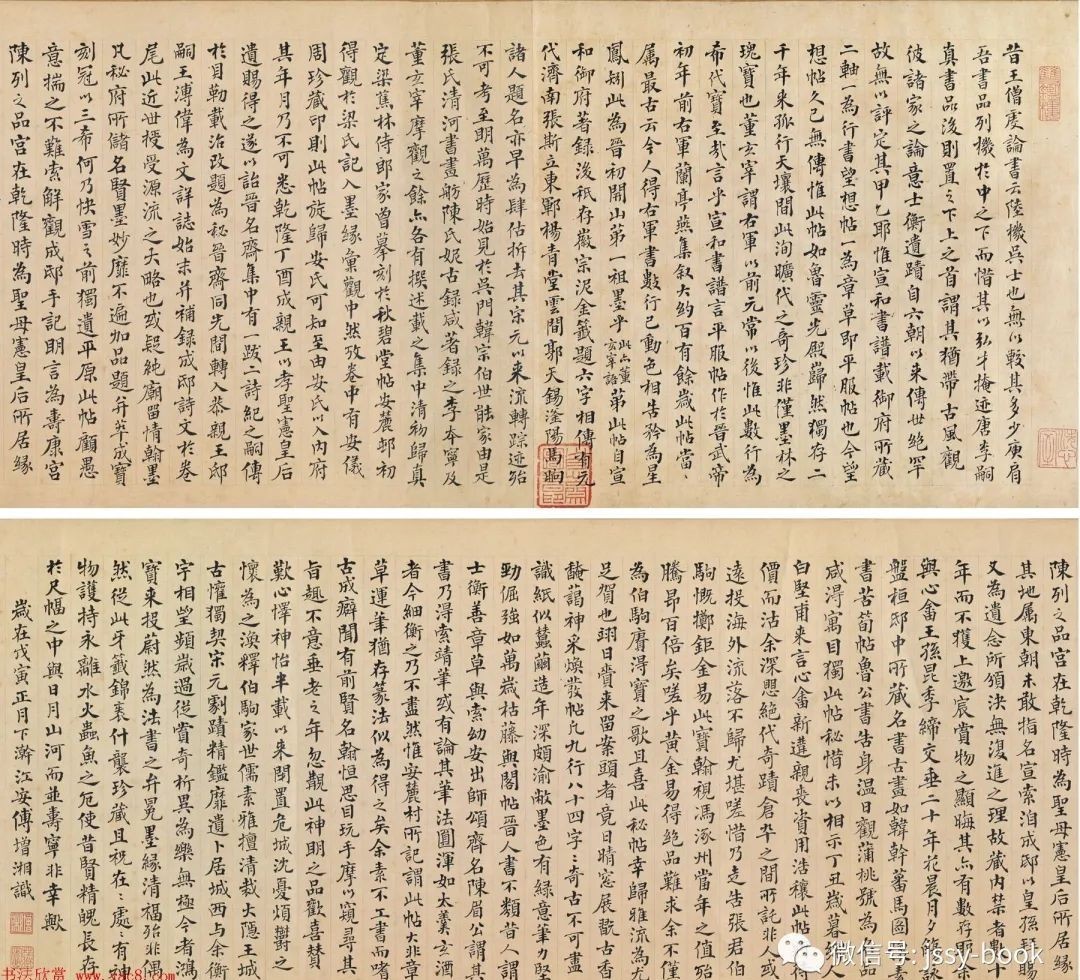 昔王僧虔論書云陸機吳士也無以較其多少庾肩
吾書品列機於中之下而惜其以弘才掩迹唐李嗣
真書品後則置之下上之首謂其猶帶古風觀
彼諸家之論意士衡遺蹟自六朝以來傳世絕罕
故無以評定其甲乙耶惟宣和書譜載御府所藏
二軸一為行書望想帖一為章草即平服帖也今望
想帖久已無傳惟此帖如魯靈光殿巋然獨存二
千年來孤行天壤間此洵曠代之奇珍非僅墨林之
瑰寶也董玄宰謂右軍以前元常以後惟此數行為
希代寶至哉言乎宣和書譜言平服帖作於晉武帝
初年前右軍蘭亭燕集叙大約百有餘歲此帖當
属最古云今人得右軍書數行已動色相告矜為星
鳳矧此為晉初開山第一祖墨乎此亦董玄宰語第此帖自宣
和御府著錄後秖存徽宗泥金籤題六字相傳有元
代濟南張斯立東鄆楊青堂雲間郭天錫滏陽馬昫
諸人題名亦早為肆估拆去其宋元以來流轉踪迹殆
不可考至明萬歷時始見於吳門韓宗伯世能家由是
張氏清河書畫舫陳氏妮古錄咸著錄之李本寧及
董玄宰摩觀之餘亦各有撰述載之集中清初歸真
定梁蕉林侍郎家曾摹刻於秋碧堂帖安麓邨初
得觀於梁氏記入墨緣彙觀中然攷卷中有安儀
周珍藏印則此帖旋歸安氏可知至由安氏入內府
其年月乃不可悉乾隆丁酉成親王以孝聖憲皇后
遺賜得之遂以詒晉名齋集中有一跋二詩紀之嗣傳
於貝勒載治改題為秘晉齋同光間轉入恭親王邸
嗣王溥偉為文詳誌始末并補錄成邸詩文於卷
尾此近世授受源流之大略也或疑純廟留情翰墨
凡秘府所儲名賢墨妙靡不遍加品題并萃成寶
刻冠以三希何乃快雪之前獨遺平原此帖顧愚
意揣之不難索解觀成邸手記明言為壽康宮
陳列之品宮在乾隆時為聖母憲皇后所居緣
陳列之品宮在乾隆時為聖母憲皇后所居緣
其地屬東朝未敢指名宣索洎成邸以皇孫拜賜
又為遺念所頒決無復進之理故藏內禁者數
年而不獲上邀宸賞物之顯晦其亦有數存耶
與心畬王孫昆季締交垂二十年花晨月夕觴
盤桓邸中所藏名書古畫如韓幹蕃馬圖
書苦筍帖魯公書告身温日觀蒲桃號為名品
咸得寓目獨此帖秘惜未以相示丁丑歲暮
白堅甫來言心畬新遘親喪資用浩穰此帖
價而沽余深懼絕代奇蹟倉卒之間所託非人或
遠投海外流落不歸尤堪嗟惜乃走告張君伯
駒慨擲鉅金易此寶翰視馮涿州當年之值殆
騰昂百倍矣嗟乎黃金易得絕品難求余不僅
為伯駒賡得寶之歌且喜此秘帖幸歸雅流為尤
足賀也翊日賫來留案頭者竟日晴窓展翫古香
馣藹神采煥發帖凡九行八十四字字奇古不可
識紙似蠶繭造年深頗渝敝墨色有綠意筆力堅
勁倔強如萬歲枯藤與閣帖晉人書不類昔人謂
士衡善章草與索幼安出師頌齊名陳眉公謂其
書乃得索靖筆或有論其筆法圓渾如太羹玄酒
者今細衡之乃不盡然惟安麓村所記謂此帖大非章
草運筆猶存篆法似為得之矣余素不工書而嗜
古成癖聞有前賢名翰恒思目玩手摩以窺尋其
旨趣不意垂老之年忽覩此神明之品歡喜贊
歎心懌神怡半載以來閒置危城沈憂煩鬱之
懷為之渙釋伯駒家世儒素雅擅清裁大隱王城
古懽獨契宋元劇蹟精鑑靡遺卜居城西與余衡
宇相望頻歲過從賞奇析異為樂無極今者鴻
寶來投蔚然為法書之弁冕墨緣清福殆非偶
然從此牙籤錦裹什襲珍藏且祝在在處處有神
物護持永離水火蟲魚之厄使昔賢精魄長存
於尺幅之中與日月山河而並壽寧非幸歟
歲在戊寅正月下澣江安傅增湘識
书法欣赏
微信号: jssy-book